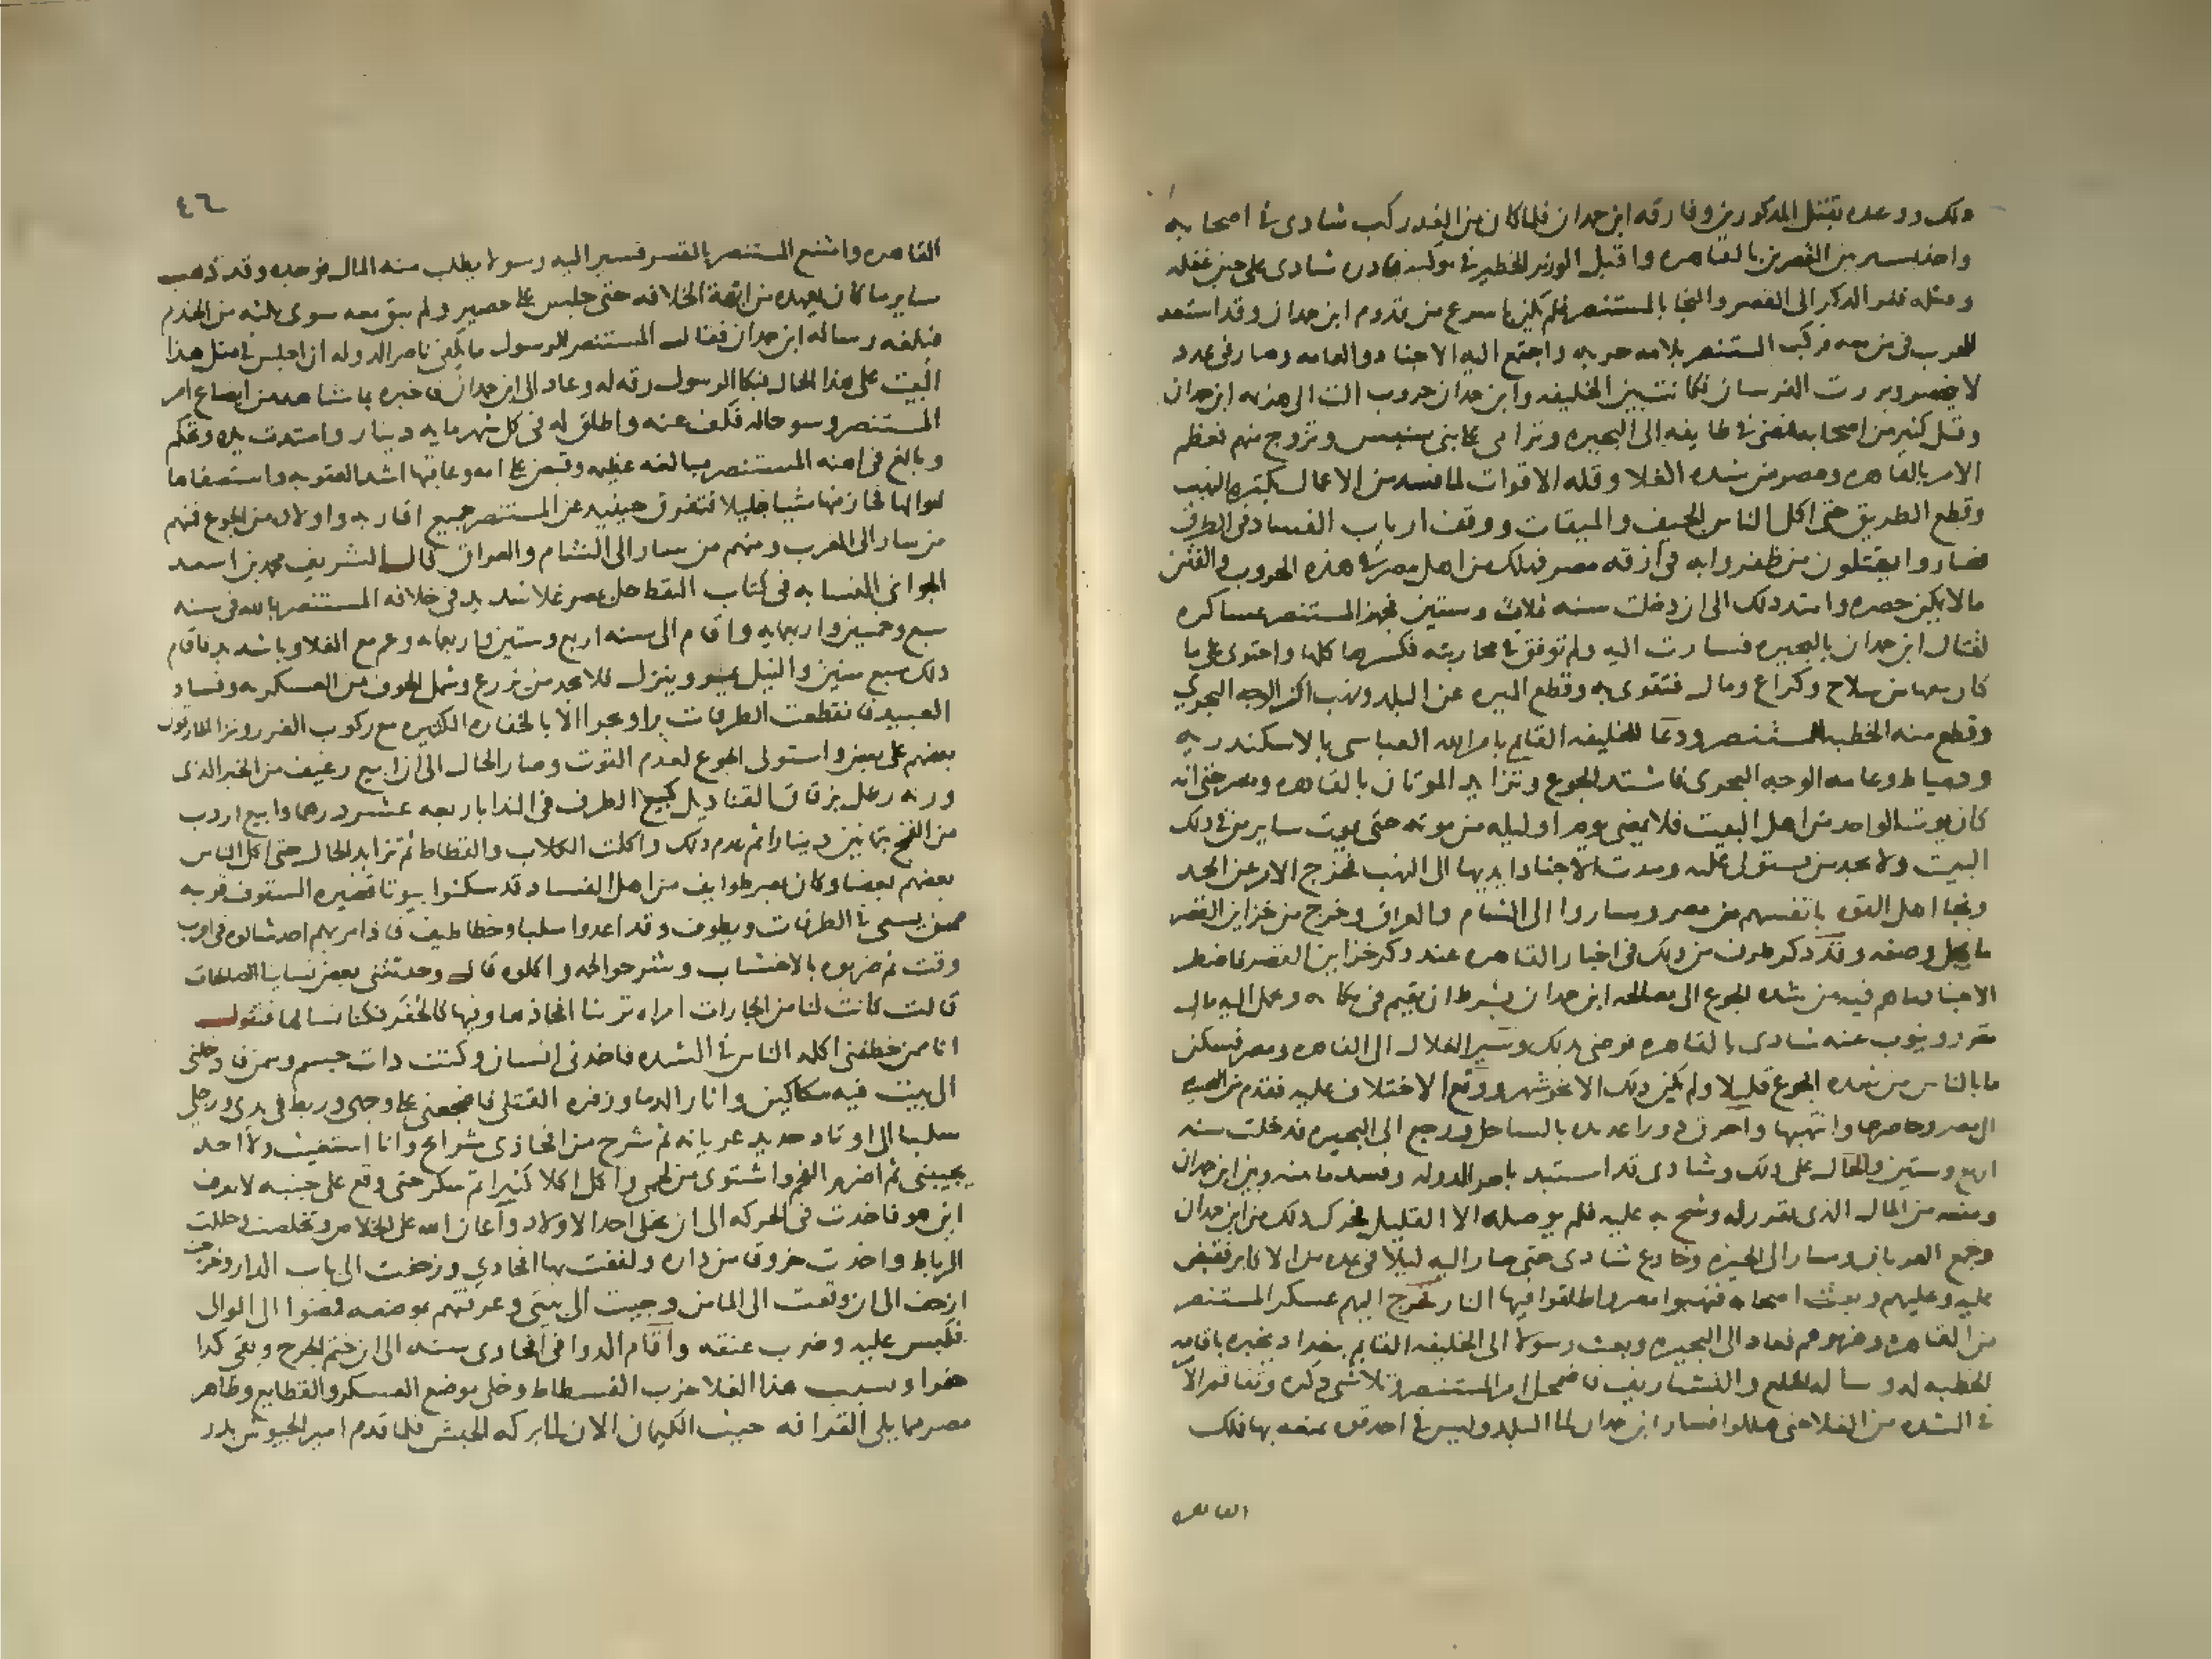 ذلك ووعده بقتل المذكورين وفارقه ابن حمدان فلما كان من الغد ركب شادى فى اصحابه
من القصرين بالقاهره واقبل الوزير الخطير فى موكبه شادى على حين غفله
وقتله ففر الدكز الى القصر والتجا بالمستنصر فلم يكن باسرع من قدوم ابن حمدان وقد استعد
للحرب فى من معه فركب المستنصر بلامه حربه واجتمع اليه الاجناد والعامه وصار فى عدد
لا يحصر وبررت الفرسان فكانت بين الخليفه وابن حمدان حروب الت الى هزيمه ابن حمدان
وقتل كثير من اصحابه فمضى فى طايفه الى البحيره وترامى على بنى سنبس وتزوج منهم فعظم
الامر بالقاهره ومصر من شده الغلا وقله الاقوات لما فسد من الاعمال بكثره النهب
وقطع الطريق حتى اكل الناس الجيف والميتات ووقف ارباب الفساد فى الطرق
فصاروا يقتلون من ظفروا به فى ازقه مصر فهلك من اهل مصر فى هذه الحروب والفتن
مالا يمكن حصره وامتد ذلك الى ان دخلت سنه ثلاث وستين فجهز المستنصر عساكره
لقتال ابن حمدان بالبحيره فسارت اليه ولم توفق فى محاربته فكسرها كلها واحتوى على ما
كان معها من سلاح وكراع ومال فتقوى به وقطع الميره عن البلد ونهب اكثر الوجه البحرى
وقطع منه الخطبه للمستنصر ودعا للخليفه القايم بامر الله العباسى بالاسكندريه
ودمياط وعامه الوجه البحرى فاشتد الجوع وتزايد الموتان بالقاهره ومصر حتى انه
كان يموت الواحد من اهل البيت فلا يمضى يوم او ليله من موته حتى يموت ساير من فى ذلك
البيت ولا يجد من يستولى عليه ومدت الاجناد ايديها الى النهب فخرج الامر عن الحد
ونجا اهل القوه بانفسهم من مصر وساروا الى الشام والعراق وخرج من خزاين القصر
ما يجل وصفه وقد ذكر طرف من ذلك فى اخبار القاهره عند ذكر خزاين القصر فاضطر
الاجناد ماهم فيه من شده الجوع الى مصالحه ابن حمدان بشرط ان يقيم فى مكانه وحمل اليه مال
مقرر وينوب عنه شادى بالقاهره فرضى بذلك وسير الغلال الى القاهره ومصر فسكن
ما بالناس من شده الجوع قليلا ولم يكن ذلك الا نحو شهر ووقع الاختلاف عليه فقدم من البحيره
الى مصر وحاصرها وانتهبها واحرق دورا عديده بالساحل ورجع الى البحيره فدخلت سنه
اربع وستين والحال على ذلك وشادى قد استبد بامر الدوله وفسد ما بينه وبين ابن حمدان
ومنعه من المال الذى تقرر له وشح به عليه فلم يوصله الا القليل فجرد ذلك من ابن حمدان
وجمع العربان وسار الى الجيزه وخادع شادى حتى صار اليه ليلا فى عده من الاكابر فقبض
عليه وعليهم وبعث اصحابه فنهبوا مصر واطلقوا فيها النار فخرج اليهم عسكر المستنصر
من القاهره وهزموهم فعاد الى البحيره وبعث رسولا الى الخليفه القايم ببغداد يخبره باقامه
الخطبه له وساله الخلع والتشاريف فاضمحل امر المستنصر وتلاشى ذكره وتفاقم الامر
فى الشده من الغلا حتى هلكوا فسار ابن حمدان الى البلد وليس فى احد قوه يمنعه بها فملك
القاهره
٤٦
القاهره وامتنع المستنصر بالقصر فسير اليه رسولا يطلب منه المال فوجده وقد ذهب
ساير ما كان يعهده من ابهة الخلافه حتى جلس على حصير ولم يبق معه سوى ثلثه من الخدم
فبلغه رساله ابن حمدان فقال المستنصر للرسول ما يكفى ناصر الدوله ان اجلس فى مثل هذا
البيت على هذا الحال فبكا الرسول رقه له وعاد الى ابن حمدان فاخبره بما شاهد من اتضاع امر
المستنصر وسو حاله فكف عنه واطلق له فى كل شهر مايه دينار وامتدت يده وتحكم
وبالغ فى اهنه المستنصر مبالغه عظيمه وقبض على امه وعاقبها اشد العقوبه واستصفا ما
اموالها فحاز منها شيا جليلا فتفرق حينيذ عن المستنصر جميع اقاربه واولاده من الجوع فمنهم
من سار الى المغرب ومنهم من سار الى الشام والعراق قال الشريف محمد بن اسعد
الجوانى النسابه فى كتاب النقط حل بمصر غلا شديد فى خلافه المستنصر بالله فى سنه
سبع وخمسين واربعمايه واقام الى سنه اربع وستين واربعمايه وعم مع الغلا وبا شديد فاقام
ذلك سبع سنين والنيل يمد وينزل فلا يجد من يزرع وشمل الخوف من العسكريه وفساد
العبيد فانقطعت الطرقات برا وبحرا الا بالخفاره الكثيره مع ركوب الغرر ونزا المارقون
بعضهم على بعض واستولى الجوع لعدم القوت وصار الحال الى ان ابيع رغيف من الخبز الذى
وزنه رطل بزقاق القناديل كبيع الطرف فى الندا باربعه عشر درهما وابيع اردب
من القمح بثمانين دينارا ثم عدم ذلك واكلت الكلاب والقطاط ثم تزايد الحال حتى اكل الناس
بعضهم بعضا وكان بمصر طوايف من اهل الفساد قد سكنوا بيوتا قصيره السقوف قريبه
ممن يسعى فى الطرقات ويطوف وقد اعدوا سلبا وخطاطيف فاذا مر بهم احد شالوه فى اقرب
وقت ثم ضربوه بالاخشاب وشرحوا لحمه واكلوه قال وحدثنى بعض نسايا الصالحات
قالت كانت لنا من الجارات امراه ترينا افخاذها وفيها كالحفر فكنا نسالها فتقول
انا ممن خطفنى اكله الناس فى الشده فاخذنى انسان وكنت ذات جسم وسمن فادخلنى
الى بيت فيه سكاكين واثار الدما وزفره القتلى فاضجعنى على وجهى وربط فى يدى ورجلى
سلبا الى اوتاد حديد عريانه ثم شرح من افخاذى شرايح وانا استغيث ولا احد
يجيبنى ثم اضرم الفحم واشتوى من لحمى واكل اكلا كثيرا ثم سكر حتى وقع على جنبه لا يعرف
اين هو فاخذت فى الحركه الى ان انحل احد الاوتاد واعان الله على الخلاص وتخلصت وحللت
الرباط واخذت خروقا من داره ولففت بها افخادى وزحفت الى باب الدار وخرجت
ازحف الى ان وقعت الى المامن وجيت الى بيتى وعرفتهم بموضعه فمضوا الى الوالى
فكبس عليه وضرب عنقه واقام الدوا فى افخادى سنه الى ان ختم الجرح وبقى كذا
حفرا وبسبب هذا الغلا خرب الفسطاط وخلى موضع العسكر والقطايع وظاهر
مصر مما يلى القرافه حيث الكيمان الان الى بركه الحبش فلما قدم امير الجيوش بدر